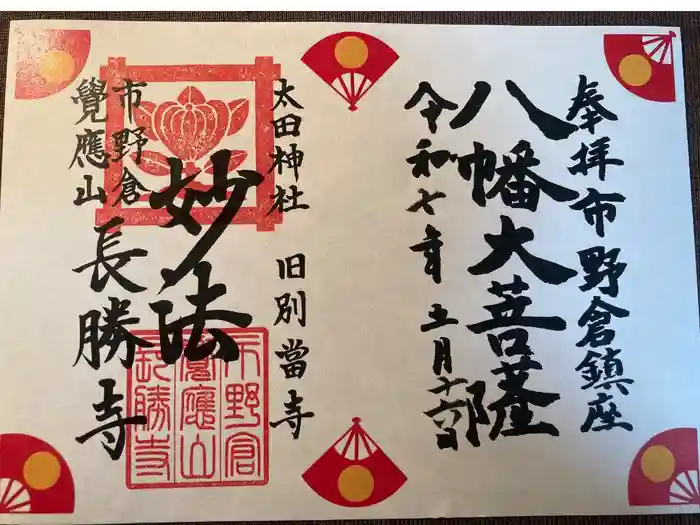 奉拝 市野倉鎮座
八幡大菩薩
令和七年 五月十六日
太田神社 旧別當寺
妙法
市野倉
覺應山
長勝寺
市野倉
覺應山
長勝寺